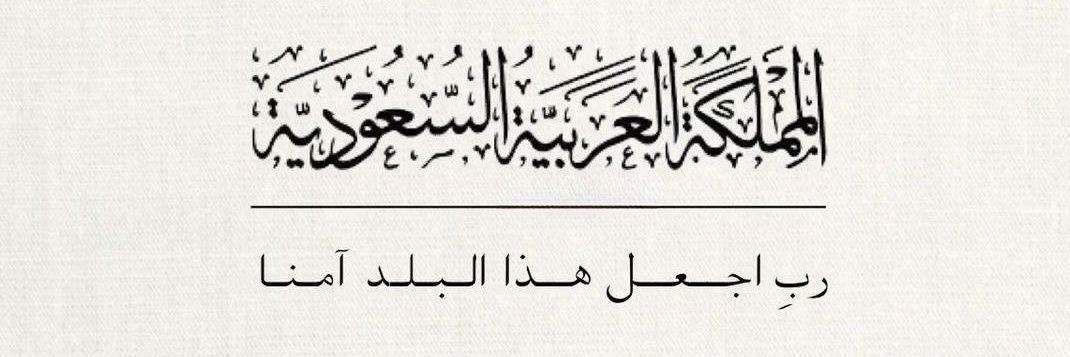 المملكة العربيّة السّعوديّة
ربِ اجعـــل هــذا الـبـلـد آمـنـا